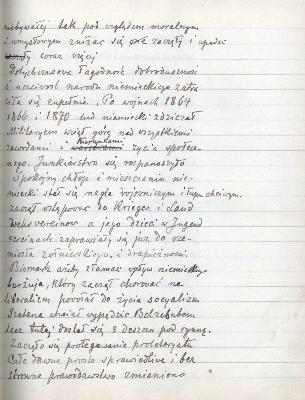 niebywałej tak pod względem moralnym
i umysłowym zniżać się one zaczęły i upadać
coraz więcej
Dotychczasowa łagodność dobroduszność
i uczciwość narodu niemieckiego zatra
ciła się zupełnie. Po wojnach 1864
1866 i 1870 lud niemiecki zdziczał
Militaryzm wziął górę nad wszystkimi
zawodami i kierunkami życia społecz
nego. Junkierstwo się rozpanoszyło
Spokojny chłop i mieszczanin nie-
miecki stał się nagle wojowniczym i łupu chciwym.
zaczął wstępować do Krieger i Land
wehrvereinów a jego dzieci w Jugend
vereinach zaprawiały się już do rze-
miosła żołnierskiego i drapieżności.
Bismark chcąc złamać wpływ niemieckiej
burżuazji, który zaczął chorować na
liberalizm powołał do życia socyalizm
Szatana chciał wypędzić Belzebubem
lecz tutaj dostał się z deszczu pod rynnę.
Zaczęło się protegowanie proletaryatu
Całe dawne prosto sprawiedliwe i bez
stronne prawodawstwo zmieniono